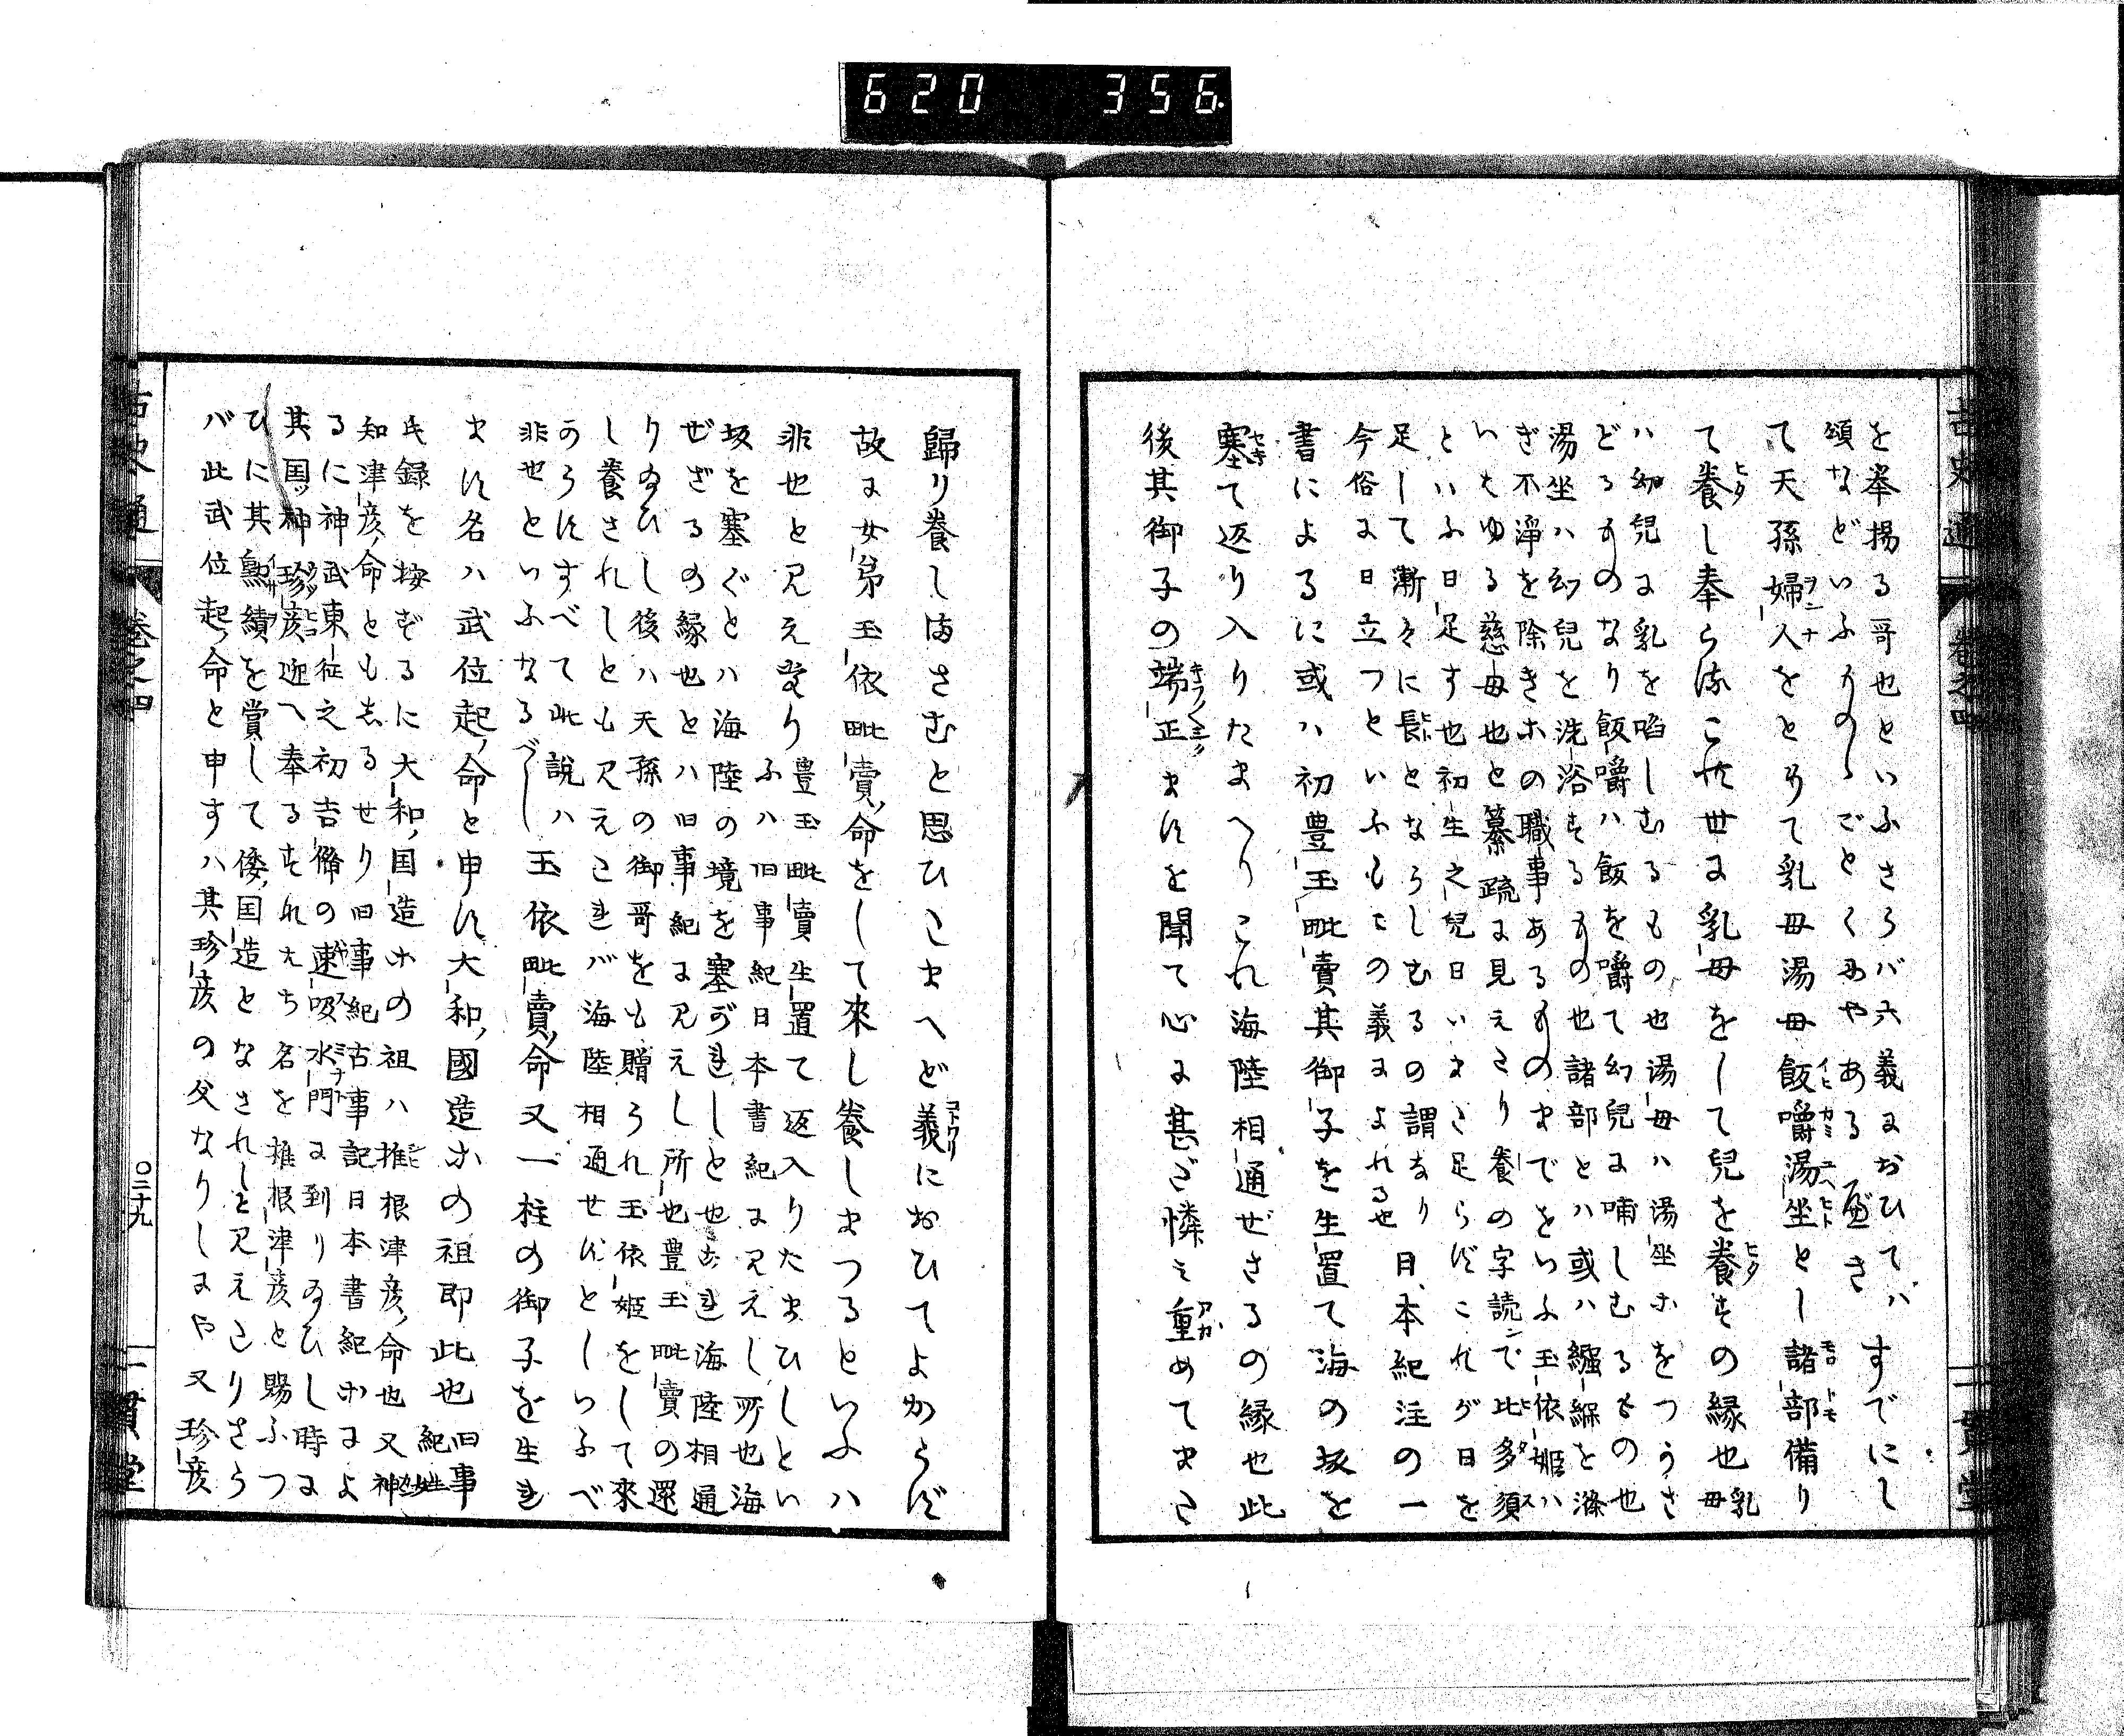 620 356
古史通
巻之四
一貫堂
を挙揚る哥也といふさらバ六義におひてハすでにし
頌などいふものゝごとくにやあるべき
て天孫婦人をとりて乳母湯母飯嚼湯坐とし諸部備り
て養し奉らすこれ世に乳母をして兒を養すの縁也乳母
ハ幼兒に乳を啗しむるもの也湯母ハ湯坐ホをつうさ
どるものなり飯嚼ハ飯を嚼て幻兒に哺しむるもの也
湯坐ハ幻兒を洗浴するもの也諸部とハ或ハ繈緥を滌
ぎ不淨を除きホの職事あるものまでをいふ玉依姫ハ
いはゆる慈母也と纂疏に見えたり養の字読で比多須
といふ日足す也初生之兒日いまた足らずこれが日を
足して漸々に長となうしむるの謂なり日本紀注の一
今俗に日立つといふもこの義によれる也
書によるに或ハ初豊玉毗賣其御子を生置て海の坂を
塞て返り入りたまへりこれ海陸相通ぜざるの縁也此
後其御子の端正ますを聞て心に甚ざ憐み重めてまた
歸り養しまさむと思ひたまへど義におひてよからず
故に女弟玉依毗賣命をして來し養しまつるといふハ
非也と見え豊玉毗賣生置て返入りたまひしとい
ふハ旧事紀日本書紀に見えし所也海
坂を塞ぐとハ海陸の境を塞がれしと也され海陸相通
ぜざるの縁也とハ旧事紀に見えし所也豊玉毗賣の還
り給ひし後ハ天孫の御哥をも贈られ玉依姫をして來
し養されしとも見えたれバ海陸相通せずとしいふべ
のらずすべて此說ハ
非也といふなるべし玉依毗賣命又一柱の御子を生れ
ます名ハ武位起命と申す大和國造ホの祖即此也旧事紀姓
氏録を按ずるに大和国造ホの祖ハ推根津彦命也又神
知津彦命ともしるせり旧事紀古事記日本書紀ホによ
るに神武東征之初吉備の速吸水門に到り給ひし時に
其国神珍彦迎へ奉るすれたち名を推根津彦と賜ふつ
ひに其勲績を賞して倭国造となされしと見えたりさら
バ此武位起命と申すハ其珍彦の父なりしにや又珍彦
古史通
巻之四
〇二十九
一貫堂